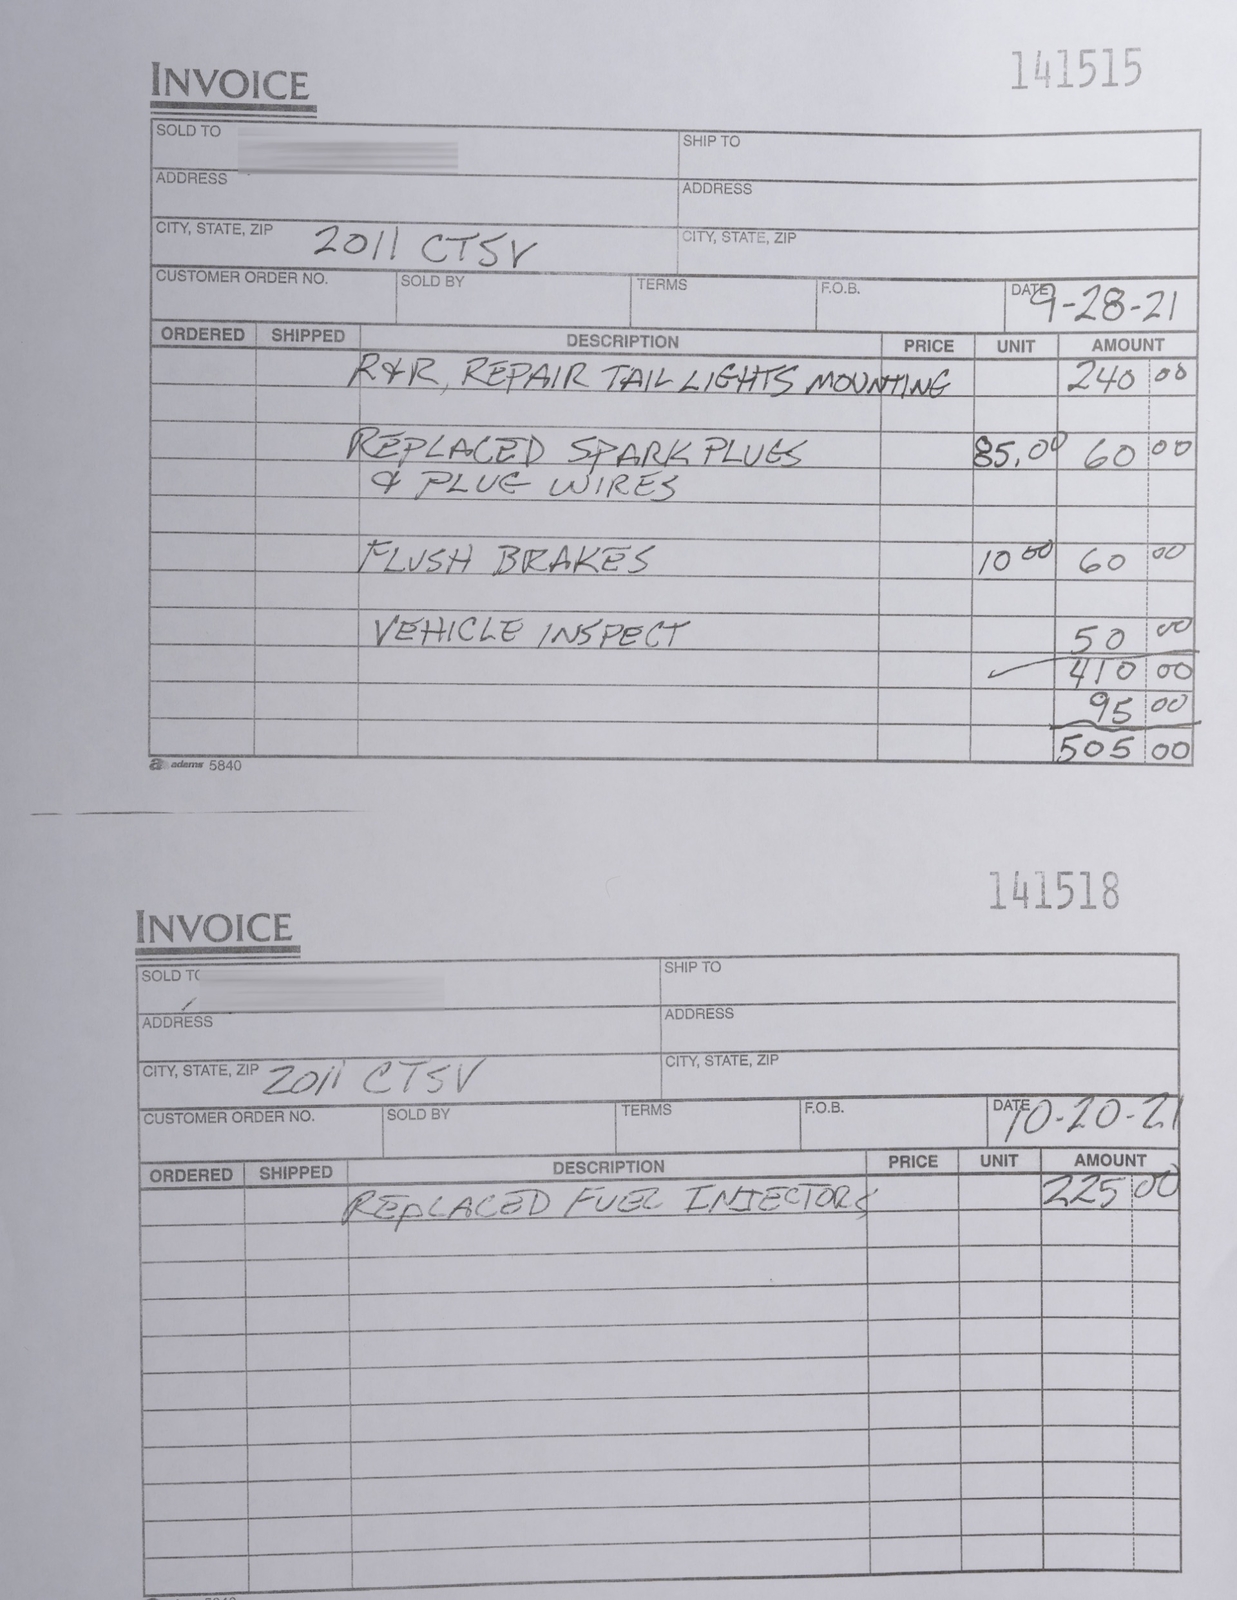 INVOICE
141515
SOLD TO
SHIP TO
ADDRESS
ADDRESS
CITY, STATE, ZIP 2011 CTSV
CITY, STATE, ZIP
CUSTOMER ORDER NO. SOLD BY TERMS F.O.B. DATE 9-28-21
ORDERED SHIPPED DESCRIPTION PRICE UNIT AMOUNT
R&R, REPAIR TAIL LIGHTS MOUNTING 240 00
REPLACED SPARK PLUGS 85.00 60 00
& PLUG WIRES
FLUSH BRAKES 10 00 60 00
VEHICLE INSPECT 50 00
410 00
95 00
505 00
a adams 5840
141518
INVOICE
SOLD TO
SHIP TO
ADDRESS
ADDRESS
CITY, STATE, ZIP 2011 CTSV
CITY, STATE, ZIP
CUSTOMER ORDER NO. SOLD BY TERMS F.O.B. DATE 10-20-21
ORDERED SHIPPED DESCRIPTION PRICE UNIT AMOUNT
REPLACED FUEL INJECTORS 225 00